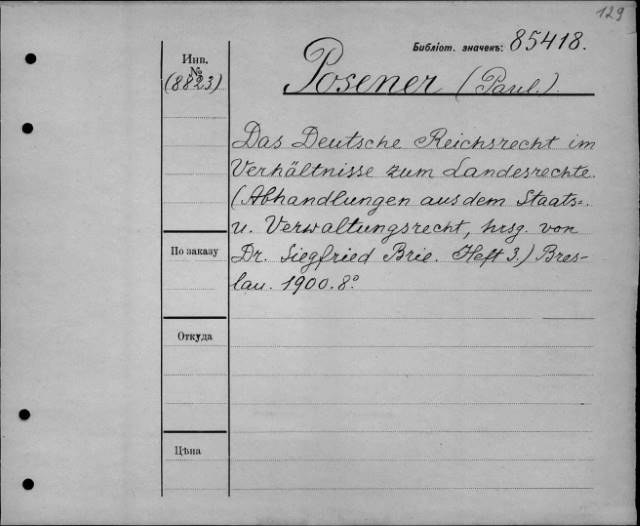 129
Библіот. значекъ: 85418.
Инв.
№
(8823)
Posener (Paul.)
Das Deutsche Reichsrecht im
Verhältnisse zum Landesrechte.
(Abhandlungen aus dem Staats=
u. Verwaltungsrecht, hrsg. von
Dr. Siegfried Brie. Heft 3.) Bres-
lau. 1900. 8º.
По заказу
Откуда
Цѣна